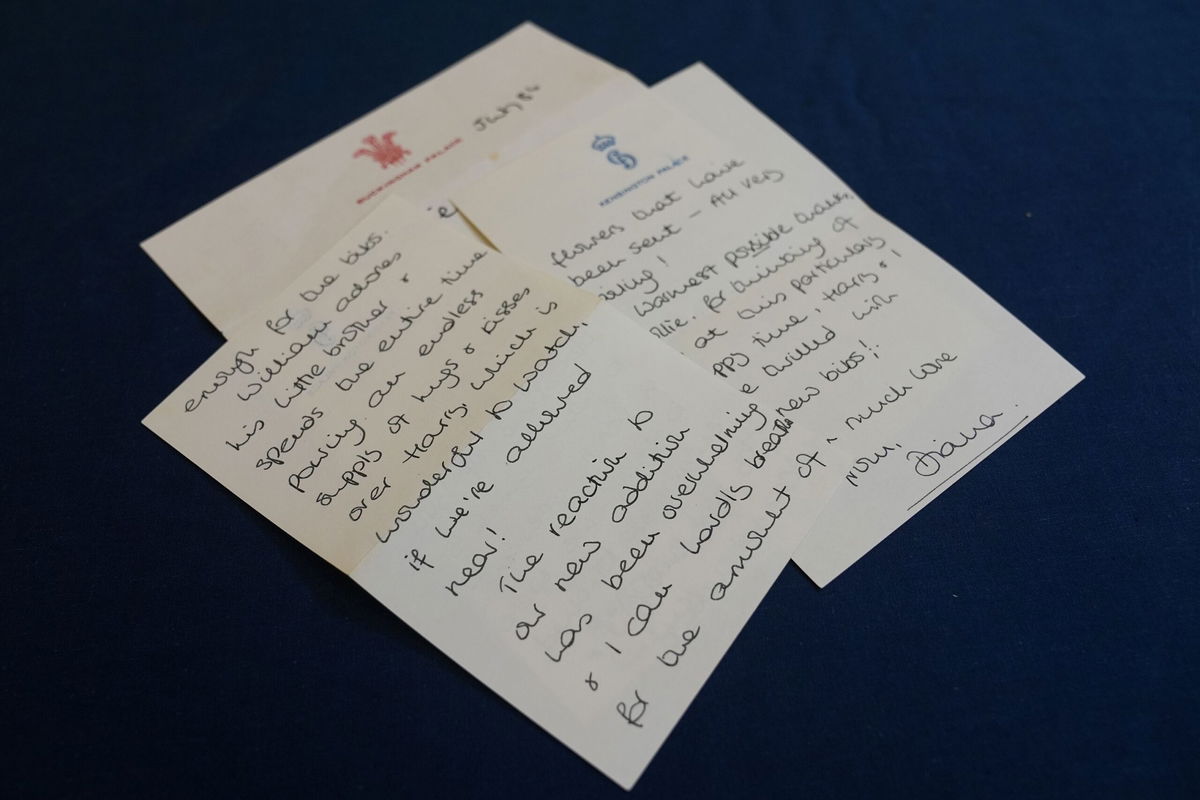 BUCKINGHAM PALACE
July 84
KENSINGTON PALACE
enough for the bibs.
William adores
his little brother &
spends the entire time
pouring an endless
supply of hugs & kisses
over Harry, which is
wonderful to watch,
if we're allowed
near!
The reaction to
our new addition
has been overwhelming
& I can hardly breathe
for the amount of
flowers that have
been sent – All very
warmest possible thanks,
for thinking of
at this particularly
time, Harry & I
thrilled with
new bibs!
much love
from,
Diana.